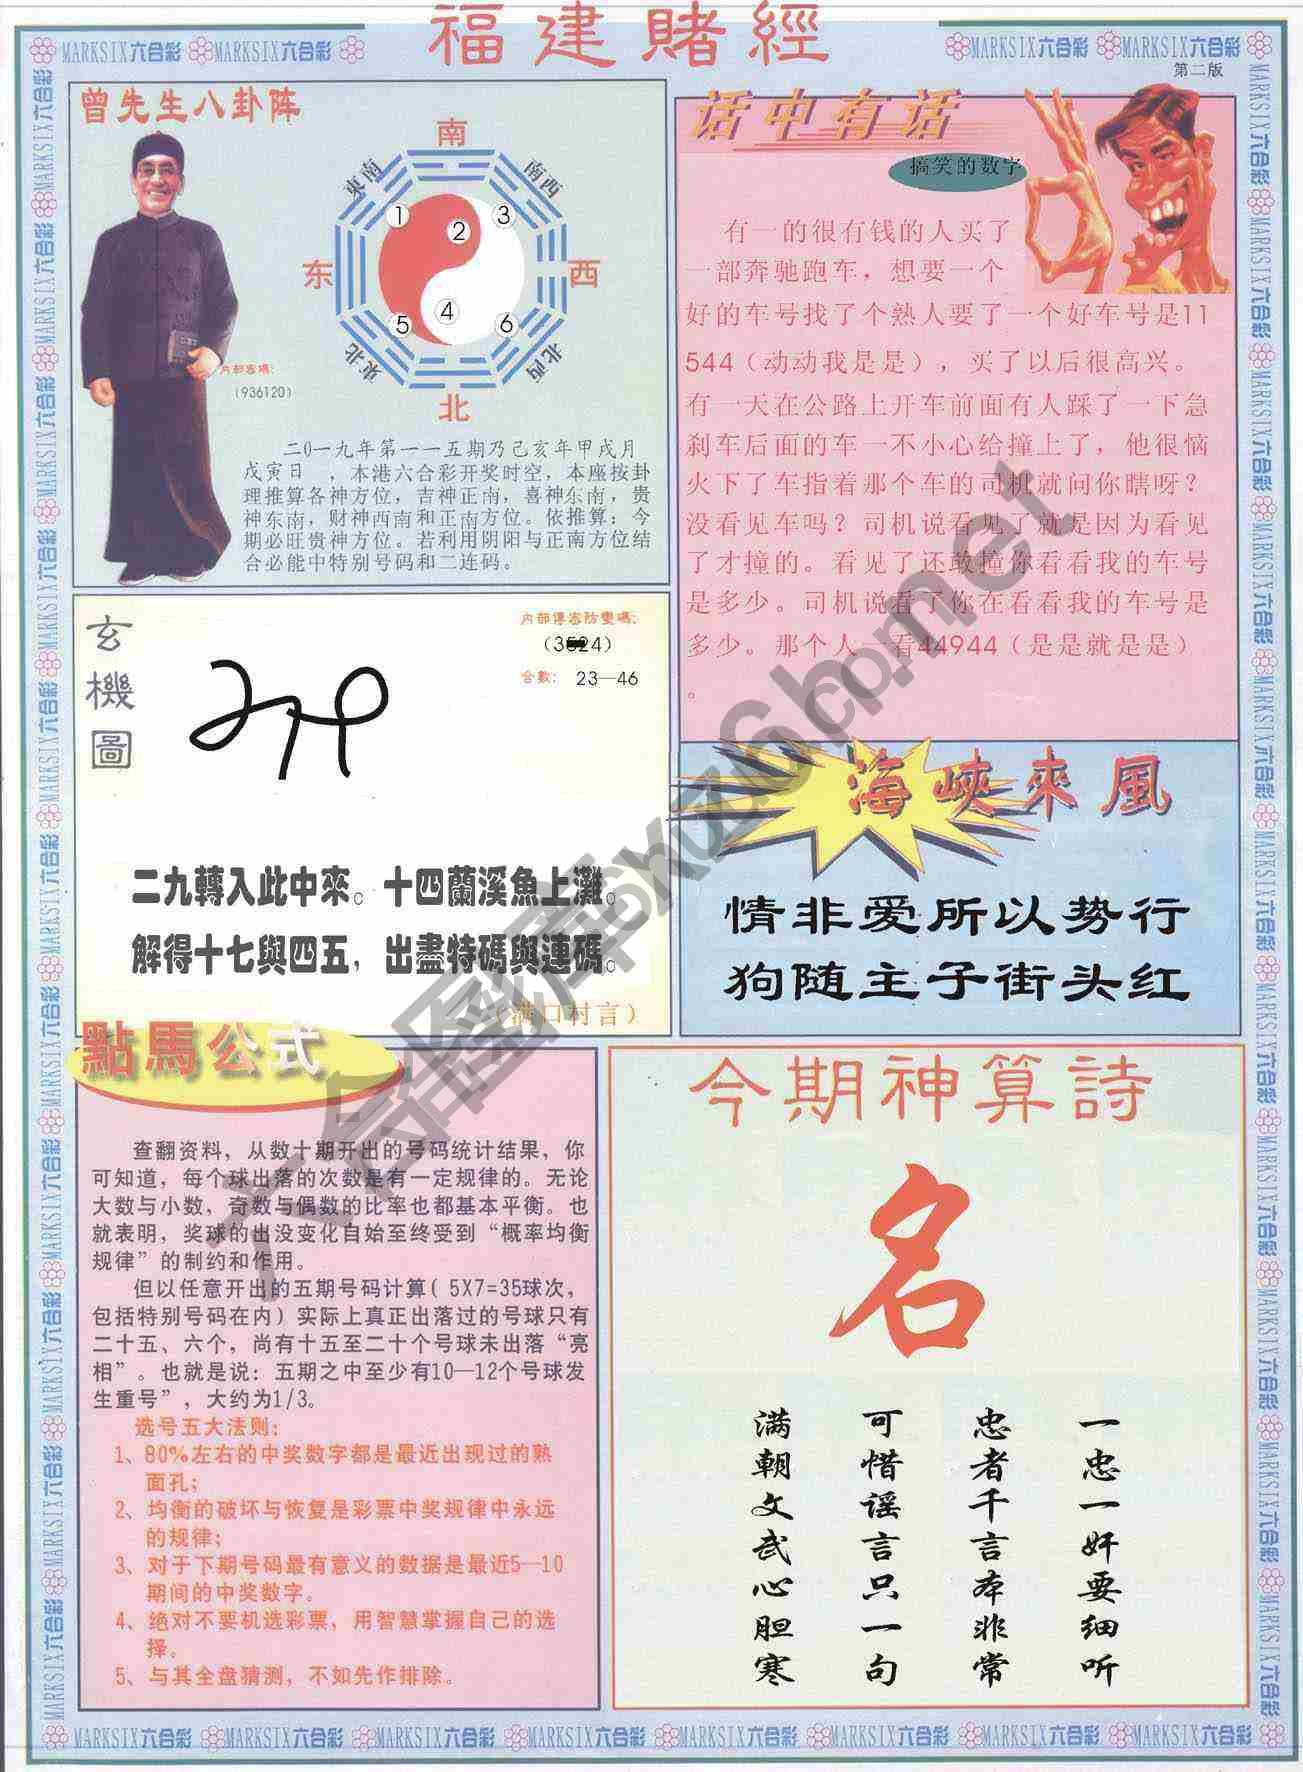 福建賭經
MARKSIX六合彩 MARKSIX六合彩
MARKSIX六合彩 MARKSIX六合彩
第二版
曾先生八卦阵
南
東南
南西
1
2
3
东
西
4
5
6
東北
北西
北
内部密碼:
(936120)
二0一九年第一一五期乃己亥年甲戌月
戊寅日 ,本港六合彩开奖时空,本座按卦
理推算各神方位,吉神正南,喜神东南,贵
神东南,财神西南和正南方位。依推算:今
期必旺贵神方位。若利用阴阳与正南方位结
合必能中特别号码和二连码。
话中有话
搞笑的数字
有一的很有钱的人买了
一部奔驰跑车,想要一个
好的车号找了个熟人要了一个好车号是11
544(动动我是是),买了以后很高兴。
有一天在公路上开车前面有人踩了一下急
刹车后面的车一不小心给撞上了,他很恼
火下了车指着那个车的司机就问你瞎呀?
没看见车吗?司机说看见了就是因为看见
了才撞的。看见了还敢撞你看看我的车号
是多少。司机说看了你在看看我的车号是
多少。那个人一看44944(是是就是是)
。
玄機圖
内部傳密防變碼:
(3524)
合數: 23—46
二九轉入此中來。十四蘭溪魚上灘。
解得十七與四五,出盡特碼與連碼。
(满口村言)
海峽來風
情非爱所以势行
狗随主子街头红
點馬公式
查翻资料,从数十期开出的号码统计结果,你
可知道,每个球出落的次数是有一定规律的。无论
大数与小数,奇数与偶数的比率也都基本平衡。也
就表明,奖球的出没变化自始至终受到“概率均衡
规律”的制约和作用。
但以任意开出的五期号码计算( 5X7=35球次,
包括特别号码在内)实际上真正出落过的号球只有
二十五、六个,尚有十五至二十个号球未出落“亮
相”。也就是说:五期之中至少有10—12个号球发
生重号”,大约为1/3。
选号五大法则:
1、80%左右的中奖数字都是最近出现过的熟
面孔;
2、均衡的破坏与恢复是彩票中奖规律中永远
的规律;
3、对于下期号码最有意义的数据是最近5—10
期间的中奖数字。
4、绝对不要机选彩票,用智慧掌握自己的选
择。
5、与其全盘猜测,不如先作排除。
今期神算詩
名
一忠一奸要细听
忠者千言本非常
可惜谣言只一句
满朝文武心胆寒
MARKSIX六合彩 MARKSIX六合彩 MARKSIX六合彩 MARKSIX六合彩 MARKSIX六合彩 MARKSIX六合彩 MARKSIX六合彩 MARKSIX六合彩